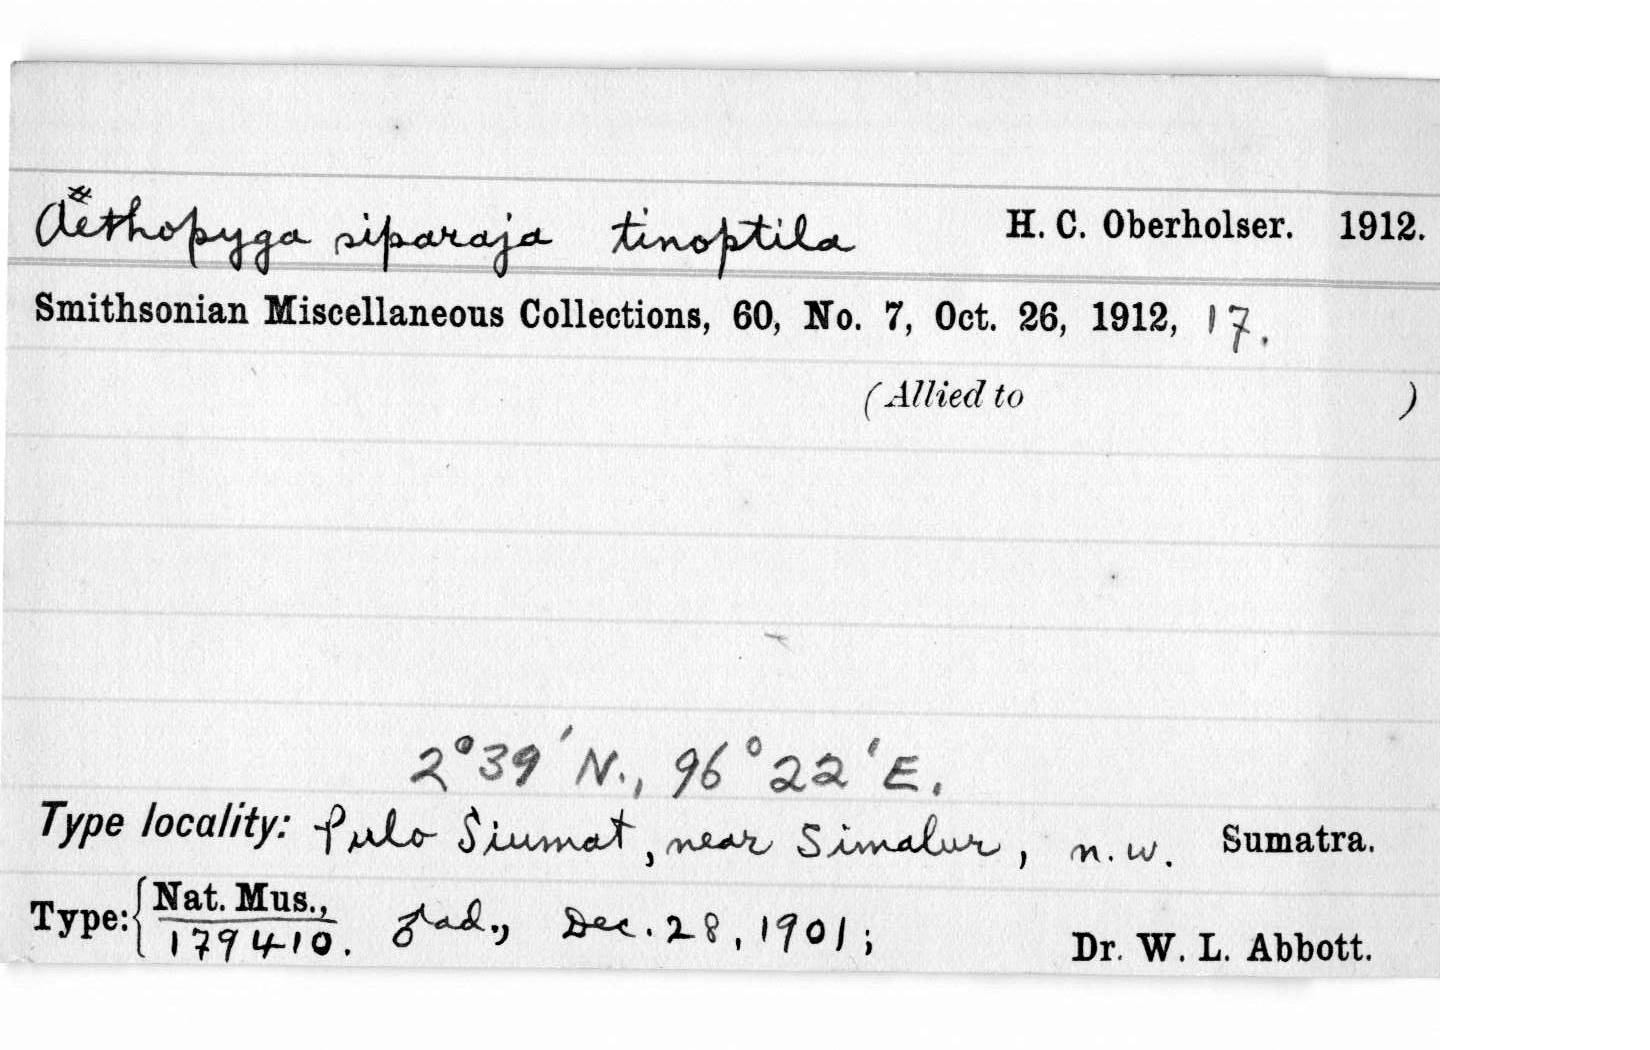 Aëthopyga siparaja tinoptila H. C. Oberholser. 1912.
Smithsonian Miscellaneous Collections, 60, No. 7, Oct. 26, 1912, 17.
(Allied to )
2°39'N., 96°22'E.
Type locality: Pulo Siumat, near Simalur, n.w. Sumatra.
Type: { Nat. Mus., 179410. ♂ad., Dec. 28, 1901; Dr. W. L. Abbott.